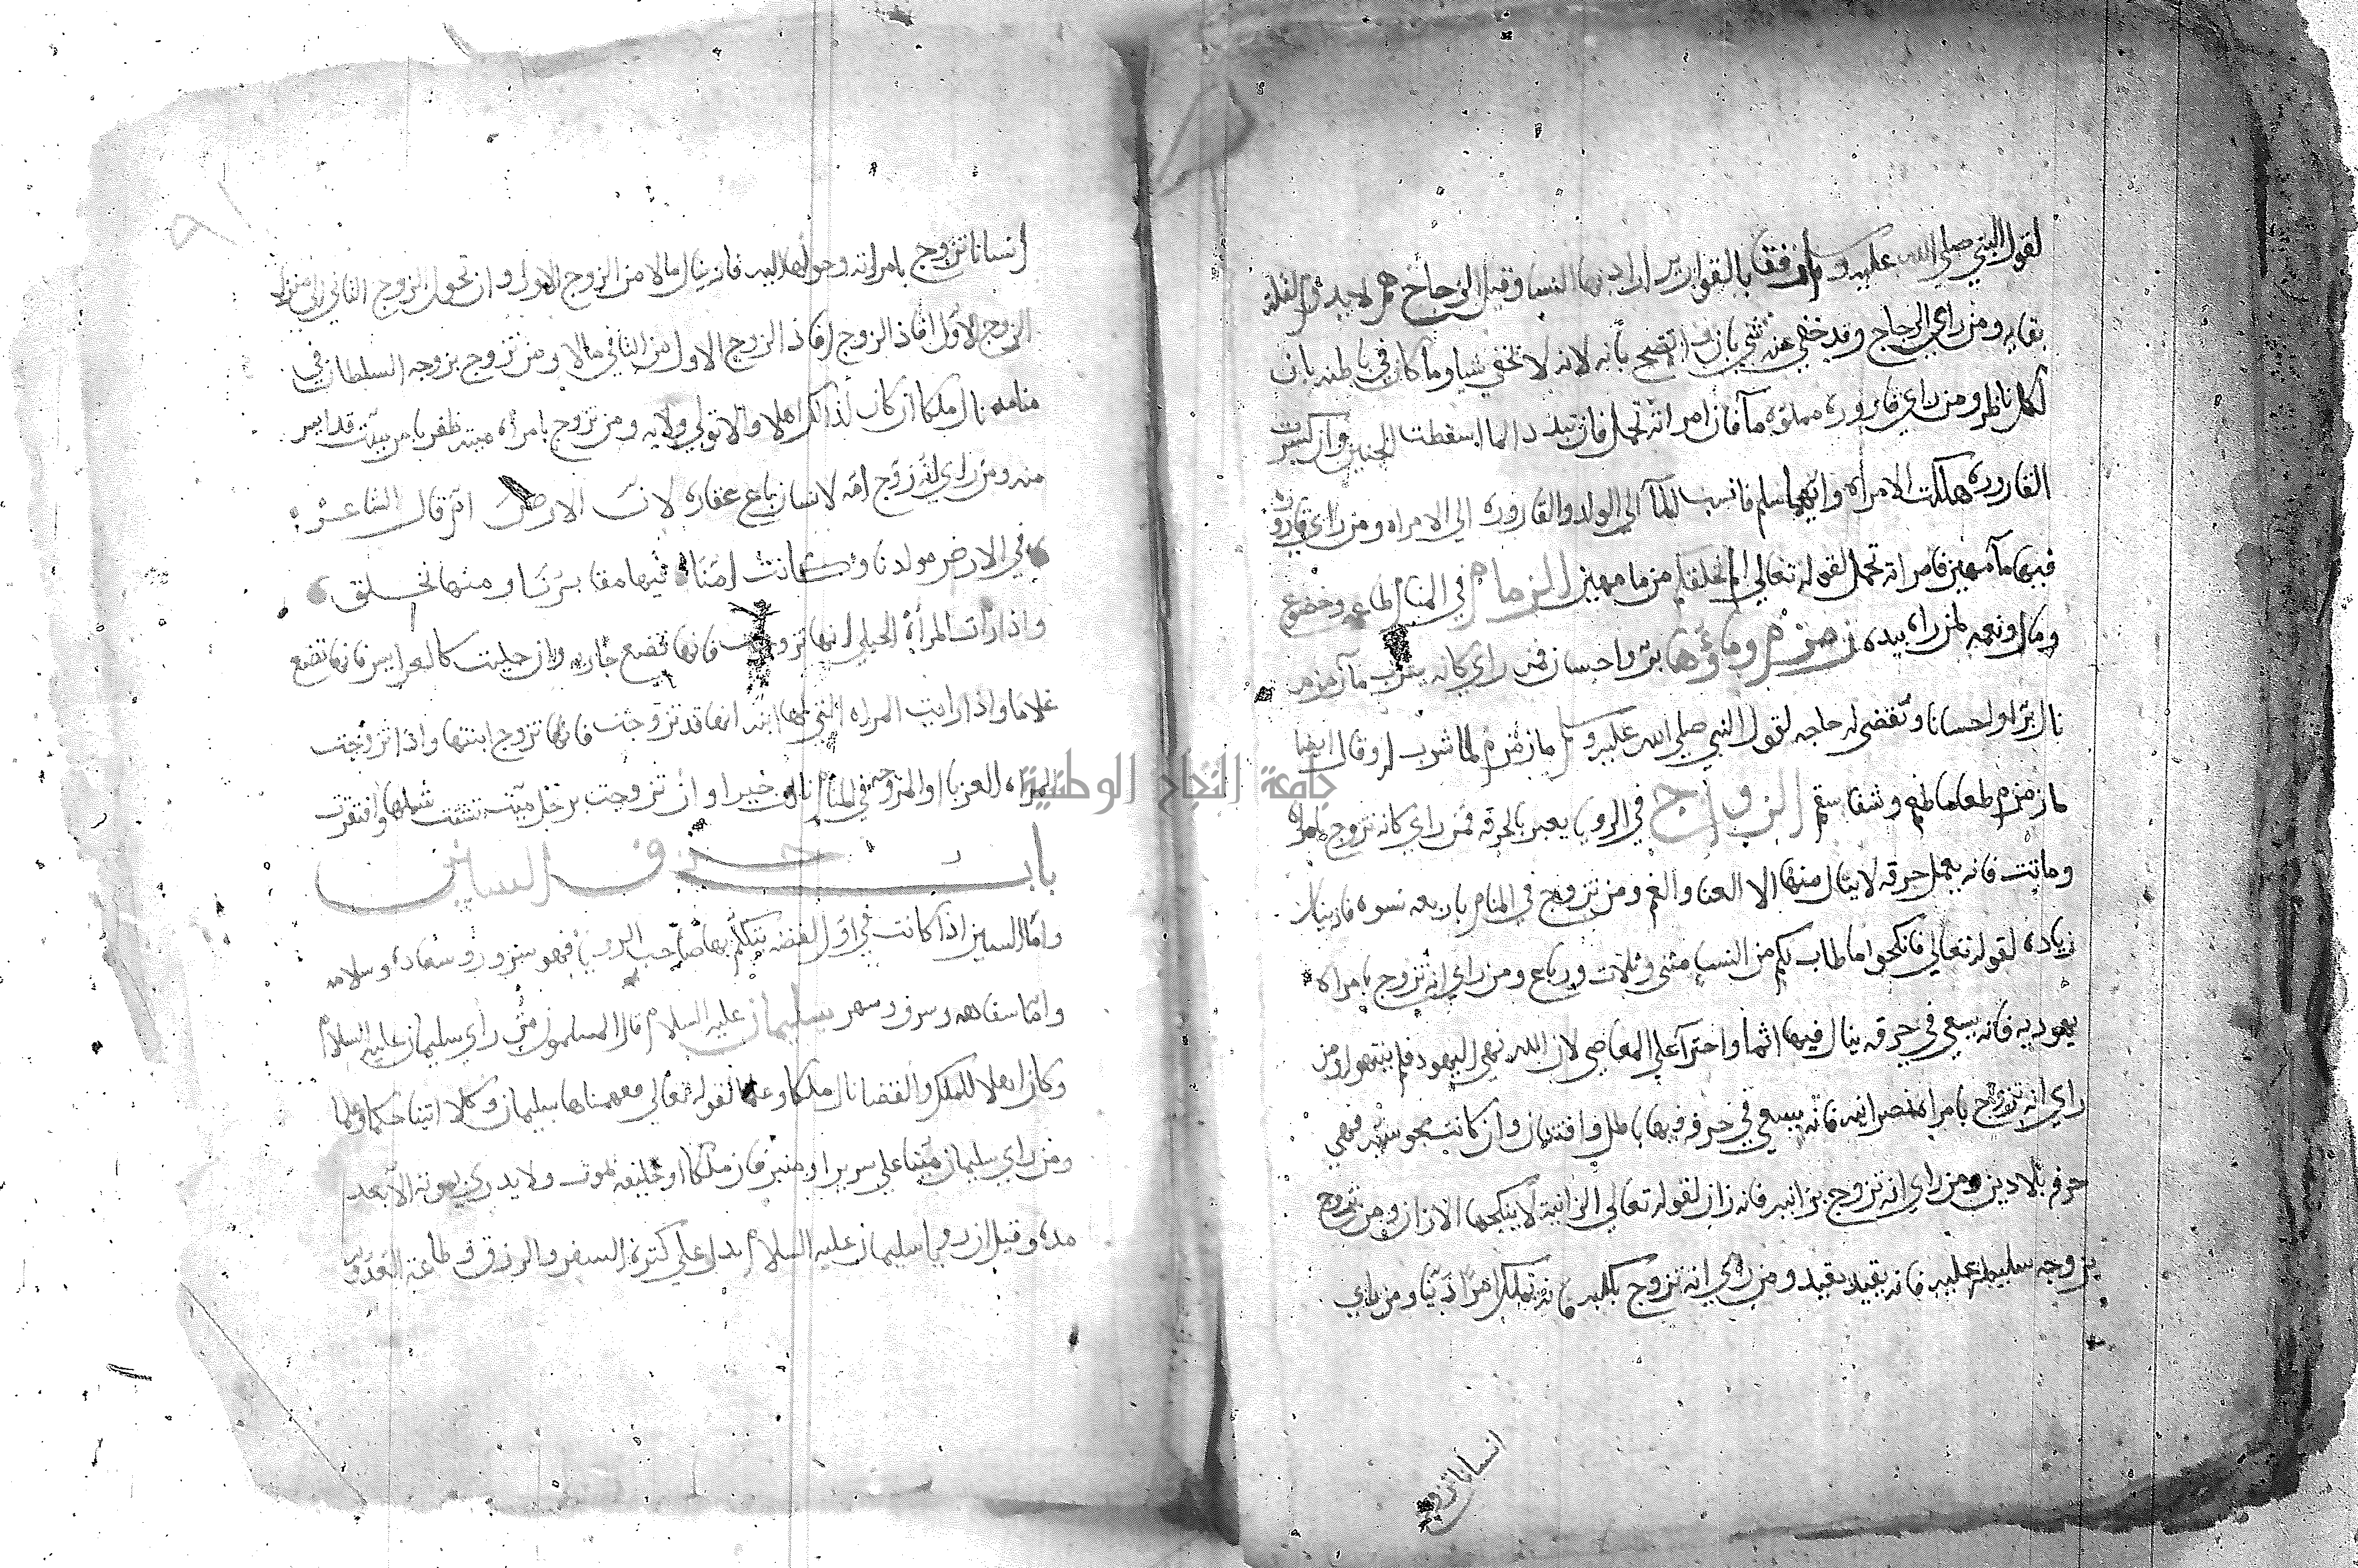 لقول النبي صلي الله عليه وسلم رفقا بالقوارير اراد بها النسا وقيل الزجاج هم لا يدوم لقلة
بقايه ومن راي الزجاج وقد خفي عنه شي بان واتضح بأنه لانه لا تخفي شيا وما كان في باطنه بان
لكل ناظر ومن راي قاروره مملوه مآ فان امراته تحمل فان تبدد الما اسقطت الجنين وان كسرت
القاروره هلكت الامراه وايهما سلم فانسب المآ الي الولد والقاروره الي الامراه ومن راي قاروره
فيها مآ مهين فامراته تحمل لقوله تعالي الم نخلقكم من ما مهين الزمام في المنام طاعه وخضوع
ومال ونعمه لمن راه بيده زمزم وماؤها بر واحسان فمن راي كانه يشرب مآ زمزم
نال برا واحسانا وتقضي له حاجه لقول النبي صلي الله عليه وسلم ما زمزم لما شرب له وقال ايضا
ما زمزم طعام طعم وشفا سقم الزواج في الرويا يعبر بالحرفه فمن راي كانه تزوج بامراه
وماتت فانه يعمل حرفه لا ينال منها الا العنا والغم ومن تزوج في المنام باربعه نسوه فانه ينال
زياده لقوله تعالي فانكحوا ما طاب لكم من النسا مثني وثلاث ورباع ومن راي انه تزوج بامراه
يهوديه فانه يسعي في حرفه ينال فيها اثما واجترآ علي المعاصي لان الله نهي اليهود فلم ينتهوا ومن
راي انه تزوج بامراه نصرانيه فانه يسعي في حرفه فيها باطل وافتتان وان كانت مجوسيه فهي
حرفه بلا دين ومن راي انه تزوج بزانيه فانه زان لقوله تعالي الزانية لا ينكحها الا زان ومن تزوج
بزوجه سليطه عليه فانه يقيد بقيد ومن راي انه تزوج بكلبه فانه تملك امراة دنيا ومن راي
انسانا تزوج
انسانا تزوج بامراته وحولها اليه فانه ينال مالا من الزوج الاول وان تحول الزوج الثاني الي منزل
الزوج الاول افاد الزوج الاول من الثاني مالا ومن تزوج بزوجه السلطان في
منامه نال ملكا ان كان لذالك اهلا والا تولي ولايه ومن تزوج بامراه ميته ظفر بامر ميت قد ايس
منه ومن راي انه زوج امه لانسان باع عقاره لان الارض ام قال الشاعر
في الارض مولدنا وكانت امنا فيها مقابرنا ومنها نخلق
واذا رأت المرأة الحبلي انها تزوجت فانها تضع جاريه وان جليت كالعرايس فانها تضع
غلاما واذا رات المراه التي لها ابنه انها قد تزوجت فانها تزوج ابنتها واذا تزوجت
المراه العزبا او المزوجه في المنام نالت خيرا وان تزوجت برجل ميت تشتت شملها وافتقرت
باب حرف السين
واما السين اذا كانت في اول لفظه يتكلم بها صاحب الرويا فهو سرور وسعاده وسلامه
واما سفاهه وسرف وسهر سليمان عليه السلام قال المسلمون من راي سليمان عليه السلام
وكان اهلا للملك والقضا نال ملكا وعلما لقوله تعالي ففهمناها سليمان وكلا اتينا حكما وعلما
ومن راي سليمان ميتا علي سرير او منبر فان ملكا او خليفه يموت ولا يدري بموته الا بعد
مده وقيل ان رويا سليمان عليه السلام يدل علي كثرة السفر والرزق وطاعة العدو
جامعة النجاح الوطنية